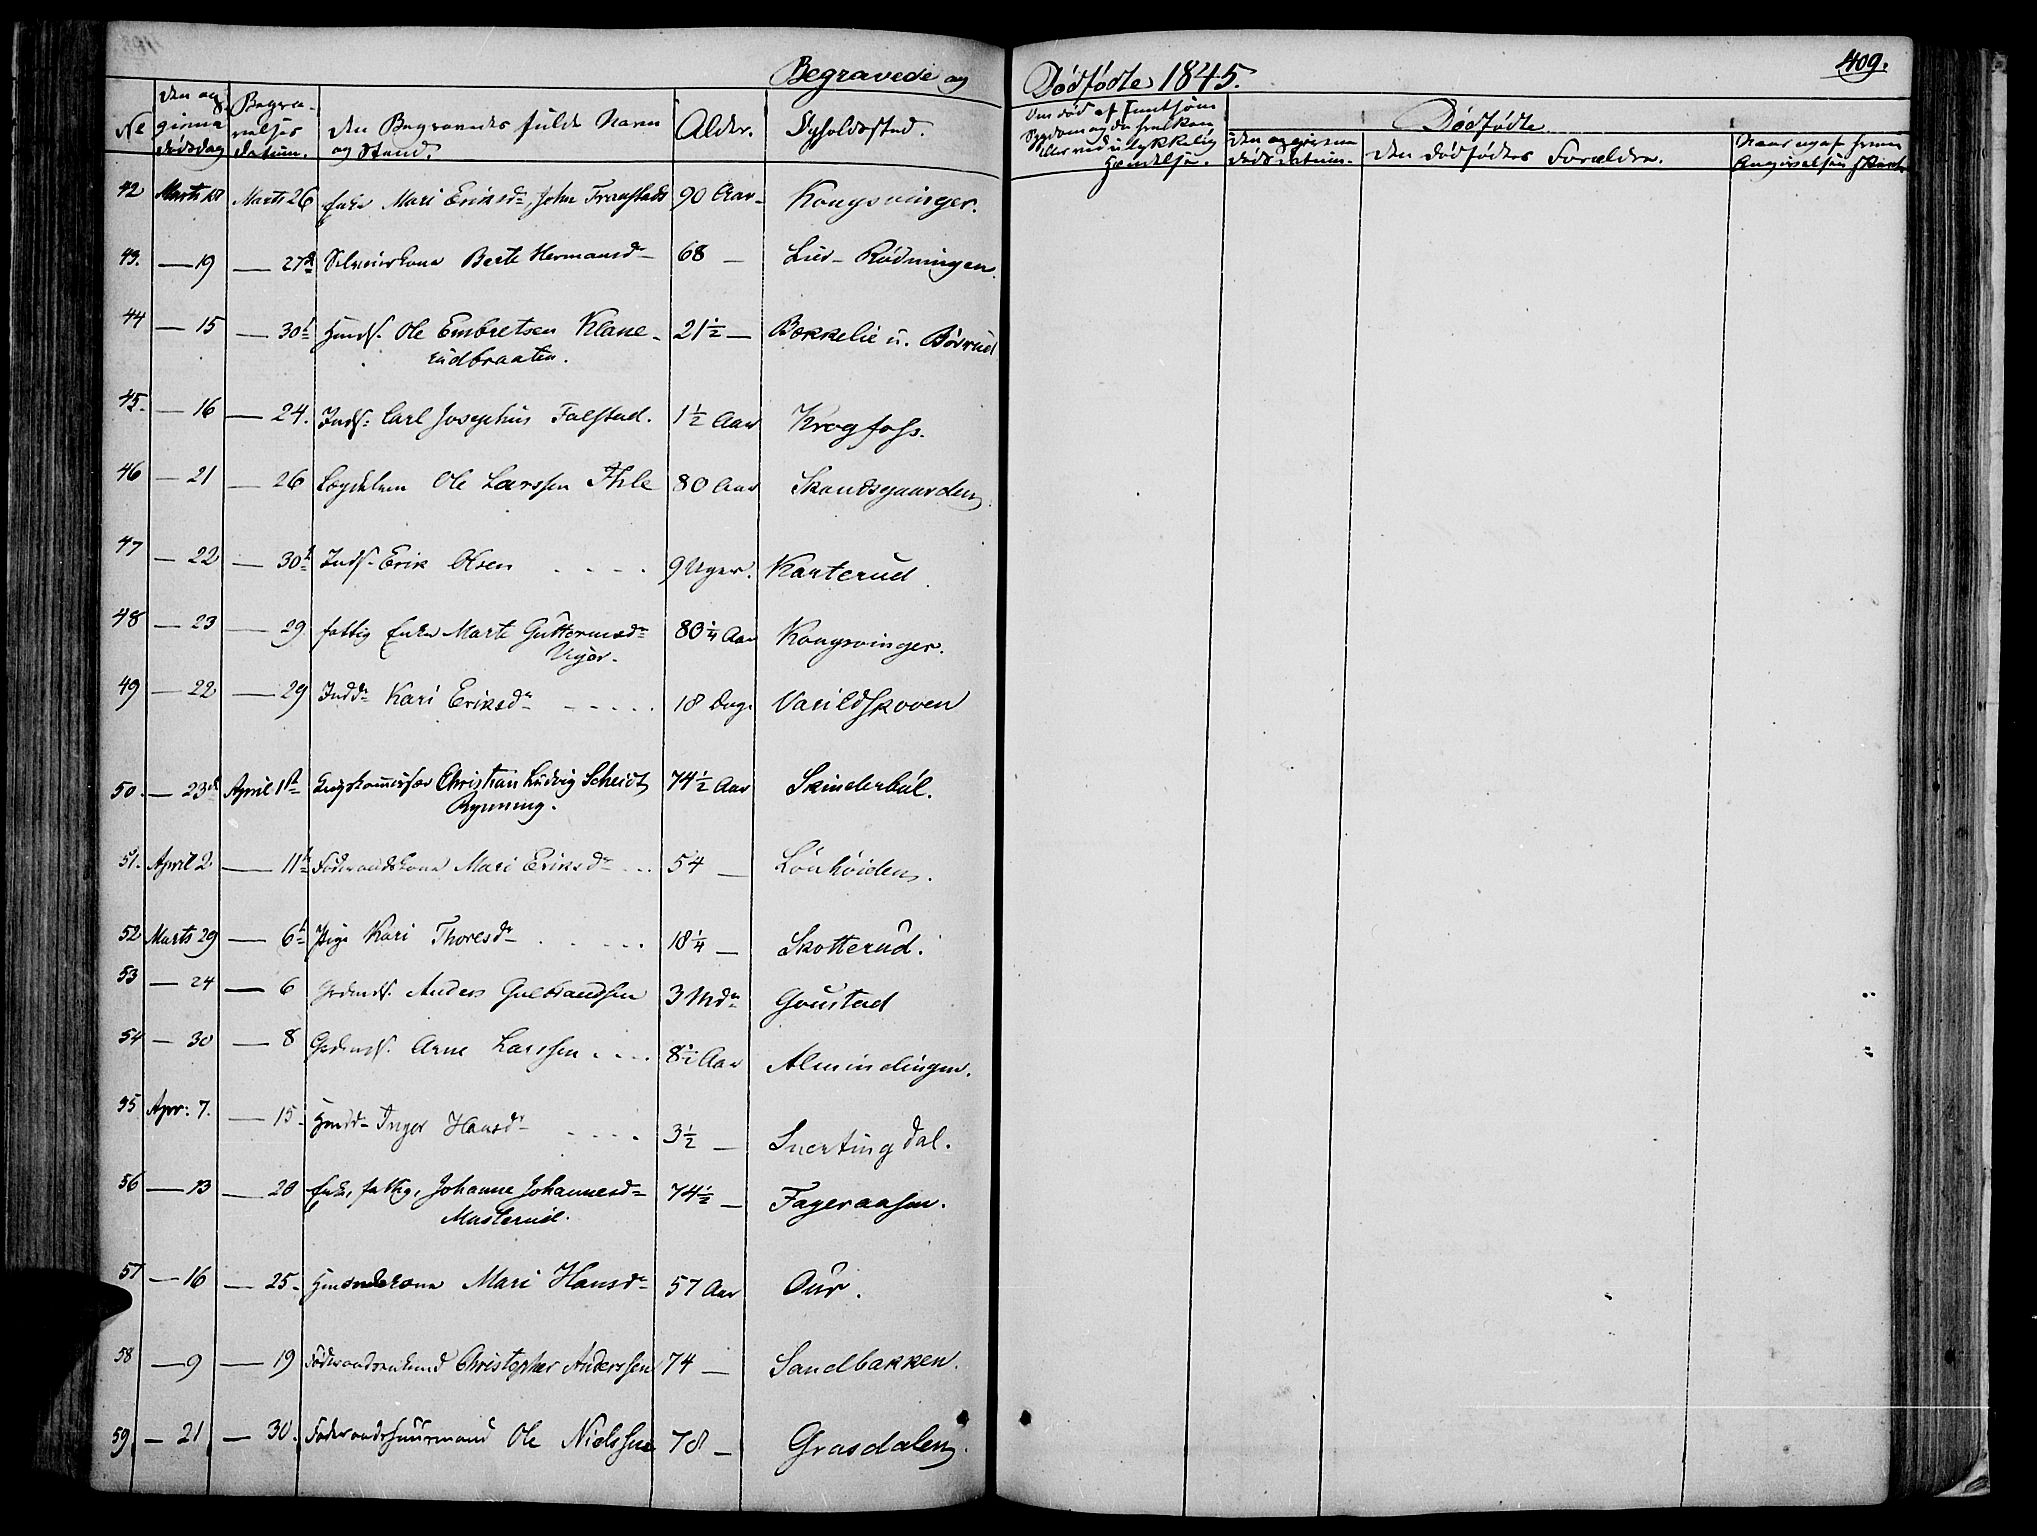 Begravede og Dødfødte 1845.
409.
No
den angivne Dødsdag
Begravelses Datum.
den Begravedes fulde Navn og Stand.
Alder.
Opholdssted.
Dødfødte
den Dødfødtes Forældre.
42 Marts 18 Marts 26 Enke Mari Eriksdr 90 Aar Kongsvinger.
43. — 19 — 27de Berte Hermansdr 68 — Lier-Rødningen
44 — 15 — 30te Ole Embretsen Klanerudbraaten. 21½ — Bækkelie u. Børrud
45. — 16 — 24. Inds. Carl Josephus Falstad. 1½ Aar Krogfoss.
46 — 21 — 26 Lægdslem Ole Larssen Ihle 80 Aar Skandsgaarden
47 — 22 — 30te Inds. Erik Olsen 9 Uger. Karterud
48 — 23 — 29 fattig Enke Marte Guttormsdr Uger. 80¼ Aar Kongsvinger.
49 — 22 — 29 Indd. Kari Eriksdr 18 Dag. Varildskoven
50. — 23de April 1ste Krigskommissær Christian Ludvig Scheidt Rynning. 74½ Aar Skinderbøl.
51. April 2 — 11te Føderaadskone Mari Eriksdr 54 — Lønhøiden.
52 Marts 29 — 6te Pige Kari Thoresdr 18¼ — Skotterud.
53 — 24 — 6 Grdmds. Anders Gulbrandsen 3 Mdr Goustad
54 — 30 — 8 Grdmds. Arne Larssen 8½ Aar Almindingen.
55 Apr: 7. — 15 Hmdd. Inger Hansdr 3½ — Snertingdal.
56 — 13 — 20 Enke, fattig, Johanne Johannesdr Masterud. 74½ — Fageraasen.
57 — 16 — 25 Mari Hansdr 57 Aar Our.
58 — 9 — 19 Føderaadsenkemd Christopher Anderssen 74 — Sandbakken.
59. — 21 — 30. Føderaadshuusmand Ole Nielssen 78 — Grasdalen.